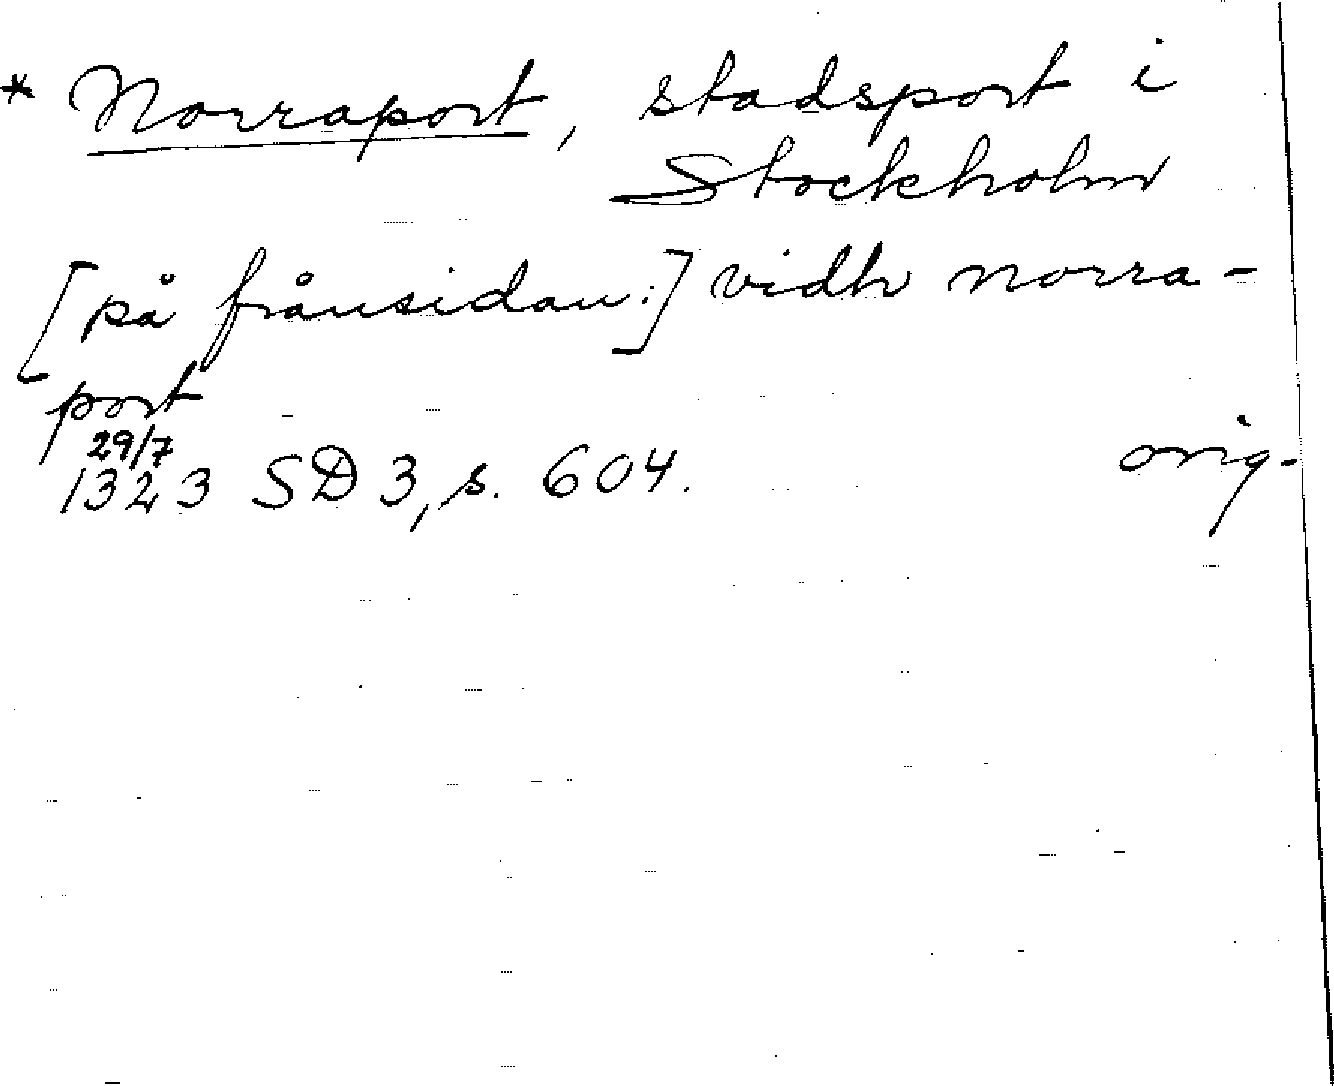 * Norraport, stadsport i
Stockholm
[på frånsidan:] vidh norra-
port
29/7
1323 SD 3, s. 604. orig.